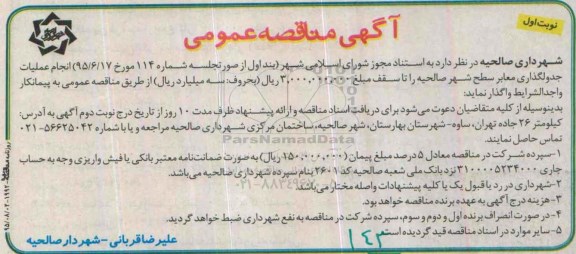 نوبت اول
آگهی مناقصه عمومی
شهرداری صالحیه در نظر دارد به استناد مجوز شورای اسلامی شهر (بند اول از صورتجلسه شماره ۱۱۴ مورخ ۹۵/۶/۱۷) انجام عملیات
جدولگذاری معابر سطح شهر صالحیه را تا سقف مبلغ ۳،۰۰۰،۰۰۰،۰۰۰ ریال (بحروف: سه میلیارد ریال) از طریق مناقصه عمومی به پیمانکار
واجدالشرایط واگذار نماید:
بدینوسیله از کلیه متقاضیان دعوت می‌شود برای دریافت اسناد مناقصه و ارائه پیشنهاد ظرف مدت ۱۰ روز از تاریخ درج نوبت دوم آگهی به آدرس:
کیلومتر ۲۶ جاده تهران، ساوه - شهرستان بهارستان، شهر صالحیه، ساختمان مرکزی شهرداری صالحیه مراجعه و یا با شماره ۵۶۶۲۵۰۴۲-۰۲۱
تماس حاصل نمایند.
۱- سپرده شرکت در مناقصه معادل ۵ درصد مبلغ پیمان (۱۵۰،۰۰۰،۰۰۰ ریال) به صورت ضمانت‌نامه معتبر بانکی یا فیش واریزی وجه به حساب
جاری ۳۱۰۰۰۰۵۲۳۴۰۰۰ نزد بانک ملی شعبه صالحیه کد ۲۶۰۱ بنام سپرده شهرداری صالحیه می‌باشد.
۲- شهرداری در رد یا قبول یک یا کلیه پیشنهادات واصله مختار می‌باشد.
۳- هزینه درج آگهی به عهده برنده مناقصه خواهد بود.
۴- در صورت انصراف برنده اول و دوم و سوم، سپرده شرکت در مناقصه به نفع شهرداری ضبط خواهد گردید.
۵- سایر موارد در اسناد مناقصه قید گردیده است.
۱۴۳
علیرضا قربانی - شهردار صالحیه
ParsNamadData